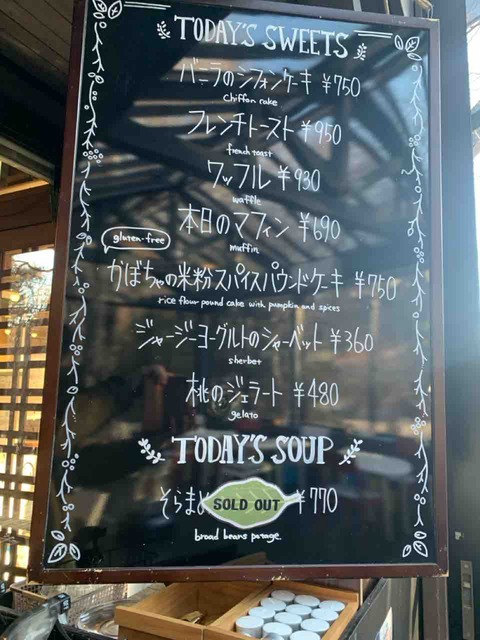 TODAY'S SWEETS
バニラのシフォンケーキ ¥750
chiffon cake
フレンチトースト ¥950
french toast
ワッフル ¥930
waffle
本日のマフィン ¥690
muffin
gluten-free
かぼちゃの米粉スパイスパウンドケーキ ¥750
rice flour pound cake with pumpkin and spices
ジャージーヨーグルトのシャーベット ¥360
sherbet
桃のジェラート ¥480
gelato
TODAY'S SOUP
そらま SOLD OUT ¥770
broad beans potage